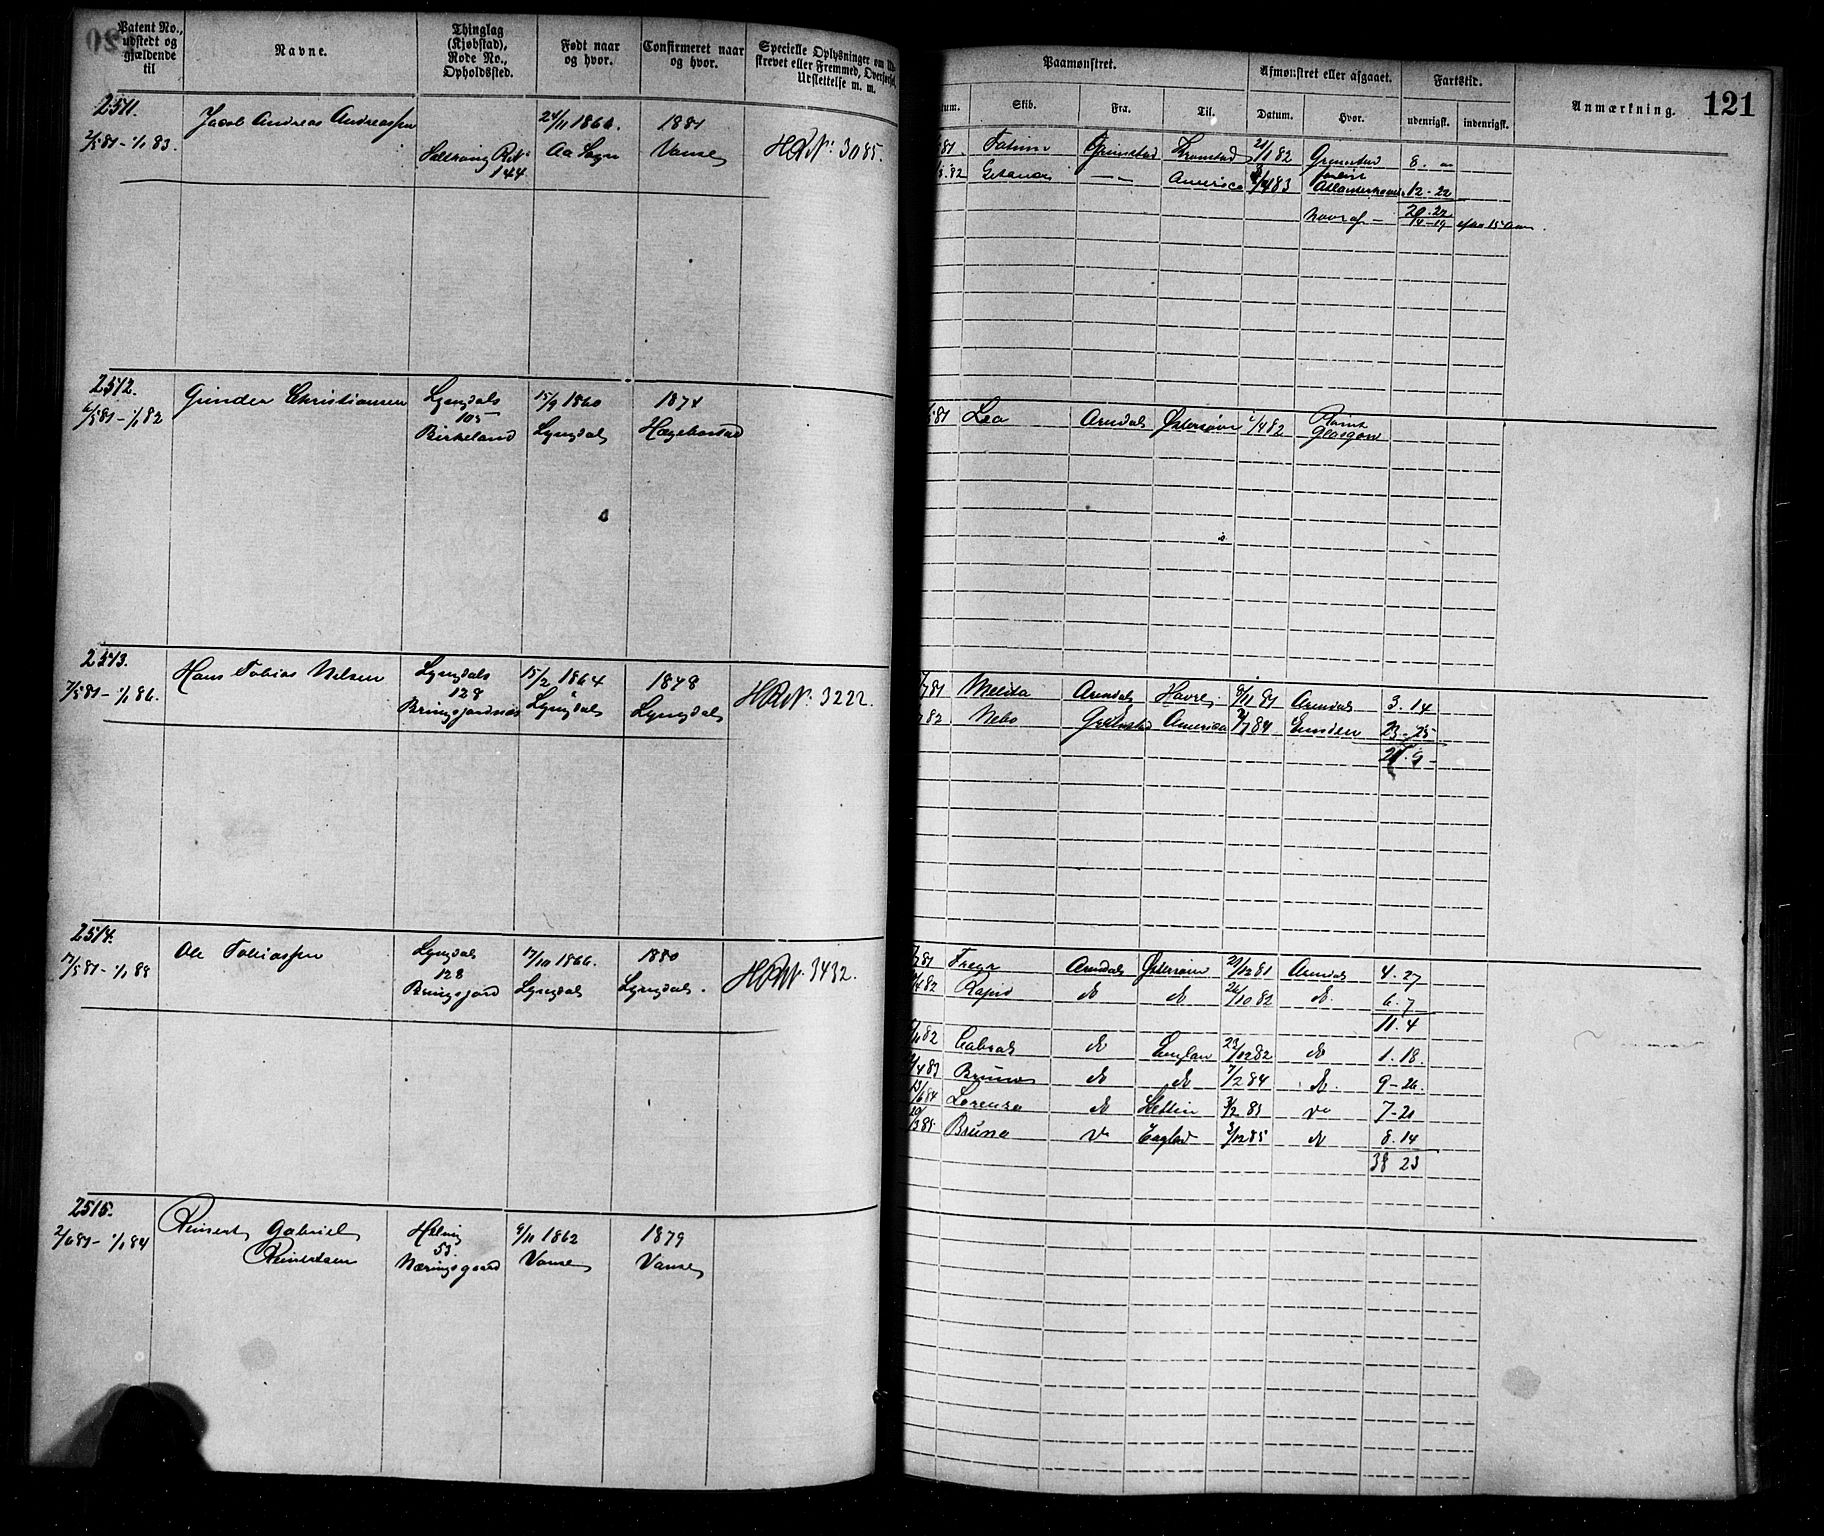 Patent No., udstedt og gjældende til
Navne.
Thinglag (Kjøbstad), Rode No., Opholdssted.
Født naar og hvor.
Confirmeret naar og hvor.
Specielle Oplysninger om
Udslettelse m. m.
Paamønstret.
Skib.
Fra.
Til.
Afmønstret eller afgaaet.
Datum.
Hvor.
Fartstid.
udenrigsk.
indenrigsk.
Anmærkning.
121
2511.
Jacob Andreas Andreassen
24/11 1866.
1881
2/5 81 - 1/1 83.
144
Aa Sogn
Vanse
HR No: 3085.
81
Grimstad
Kronstad
21/1 82
Grimstad
8.
82
America
83
12 - 22
hvoraf -
20. 22
2512.
Gunder Christiansen
Lyngdals
15/9 1860
1874
6/5 81 - 1/1 82
105
Birkeland
Lyngdal
Hægebostad
81
Lea
Arendal
Østersøen
1/4 82
Rømt
Glasgow
2513.
Hans Tobias Nilsen
Lyngdals
15/2 1864
1878
7/5 81 - 1/1 86.
128
Bringsjordnes
Lyngdal
Lyngdal
HR No: 3222.
81
Melita
Arendal
Havre
8/11 81
Arendal
3. 14
82
Nebo
Grimstad
America
2/7 84
Emden
23. 25
2514.
Ole Tobiassen
Lyngdal
17/10 1866.
1880
17/5 81 - 1/1 88
128
Bringsjord
Lyngdal
Lyngdal.
HR No 3432.
81
Freya
Arendal
Østersøen
21/12 81
Arendal
4. 27
82
Rapid
do
do
26/10 82
do
6. 7
11. 4
82
do
England
23/12 82
do
1. 18
4 83
Bruno
do
do
7/2 84
do
9 - 26
13/6 84
Lorenzo
do
Stettin
3/2 85
do
7 - 21
20/3 85
Bruno
do
England
3/12 85
do
8. 14
38 23
2515.
Reinert Gabriel
Helvig
9/11 1862
1879
2/6 81 - 1/1 84
Reinertsen
53.
Næringsgaard
Vanse
Vanse